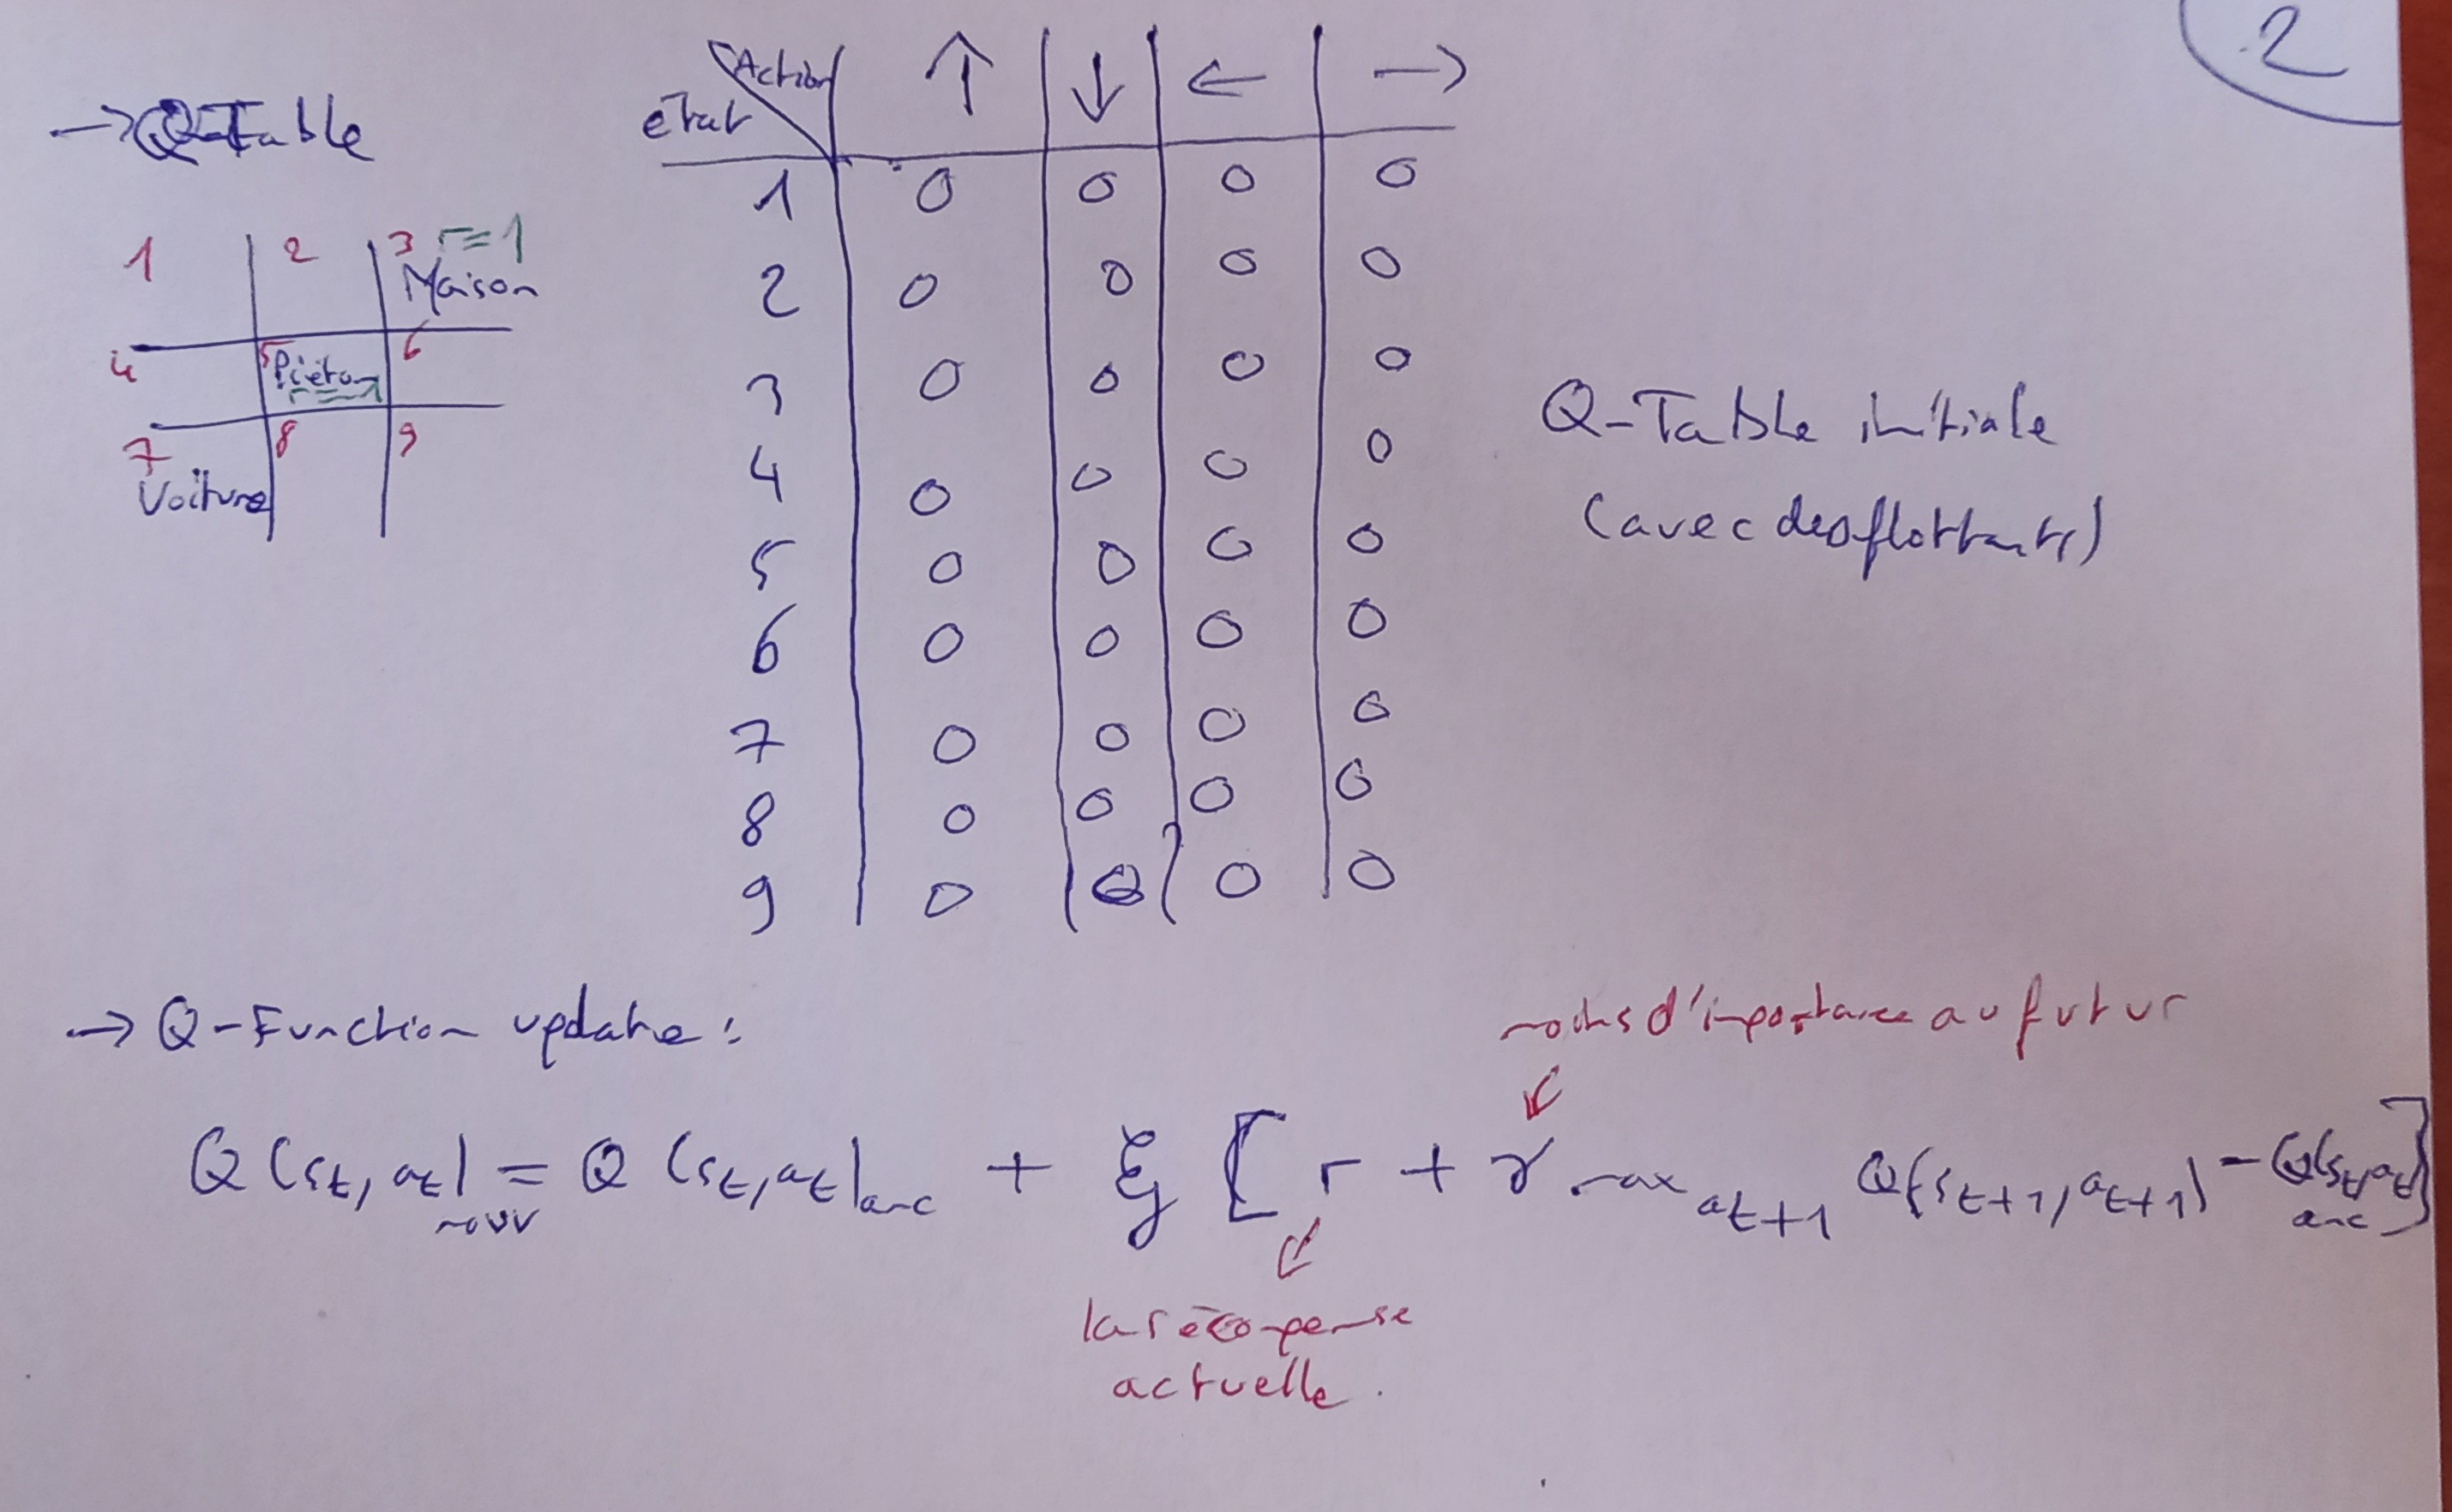 2
→ Q-Table
1 2 3 r=1
Maison
4 5 Piéton 6
r=-1
7 8 9
Voiture
état \ Action ↑ ↓ ← →
1 0 0 0 0
2 0 0 0 0
3 0 0 0 0
4 0 0 0 0
5 0 0 0 0
6 0 0 0 0
7 0 0 0 0
8 0 0 0 0
9 0 0 0 0
Q-Table initiale
(avec des flottants)
→ Q-Function update :
moins d'importance au futur
Q(st, at)nouv = Q(st, at)anc + ξ [r + γ max at+1 Q(st+1, at+1) - Q(st, at)anc]
la récompense
actuelle.